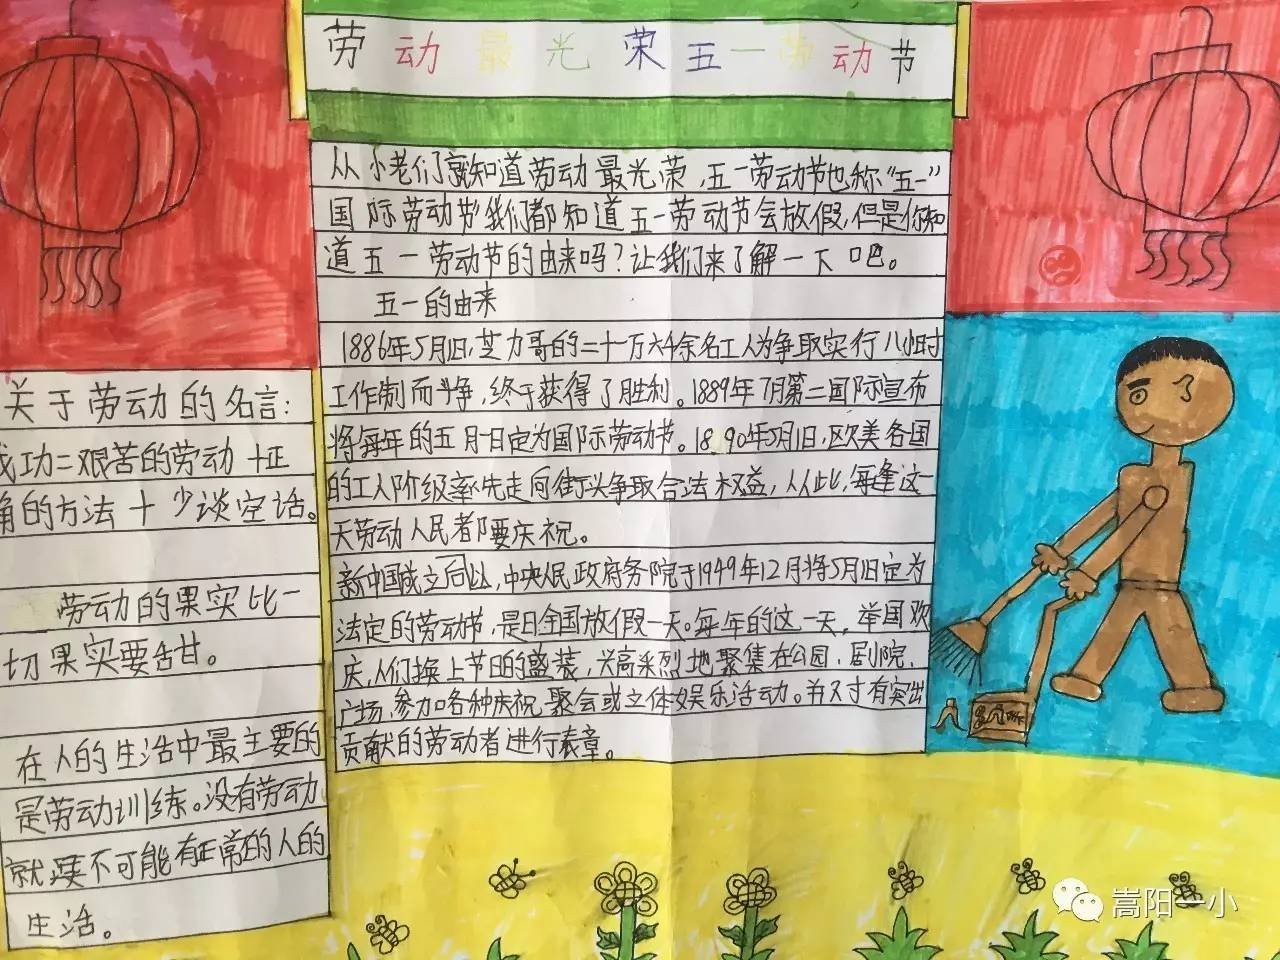 劳动最光荣五一劳动节
从小老们就知道劳动最光荣,五一劳动节也称“五一”
国际劳动节我们都知道五一劳动节会放假,但是你知
道五一劳动节的由来吗?让我们来了解一下吧。
五一的由来
1886年5月1日,芝加哥的二十一万六千余名工人为争取实行八小时
工作制而斗争,终于获得了胜利。1889年7月第二国际宣布
将每年的五月一日定为国际劳动节。1890年5月1日,欧美各国
的工人阶级率先走向街头争取合法权益,从此,每逢这一
天劳动人民都要庆祝。
新中国成立后以,中央人民政府务院于1949年12月将5月1日定为
法定的劳动节,是日全国放假一天。每年的这一天,举国欢
庆,人们换上节日的盛装,兴高采烈地聚集在公园,剧院,
广场,参加各种庆祝聚会或立体娱乐活动。并对有突出
贡献的劳动者进行表章。
关于劳动的名言:
成功二艰苦的劳动十正
角的方法十少谈空话。
劳动的果实比一
切果实要甜。
在人的生活中最主要的
是劳动训练。没有劳动
就不可能有正常的人的
生活。
嵩阳一小